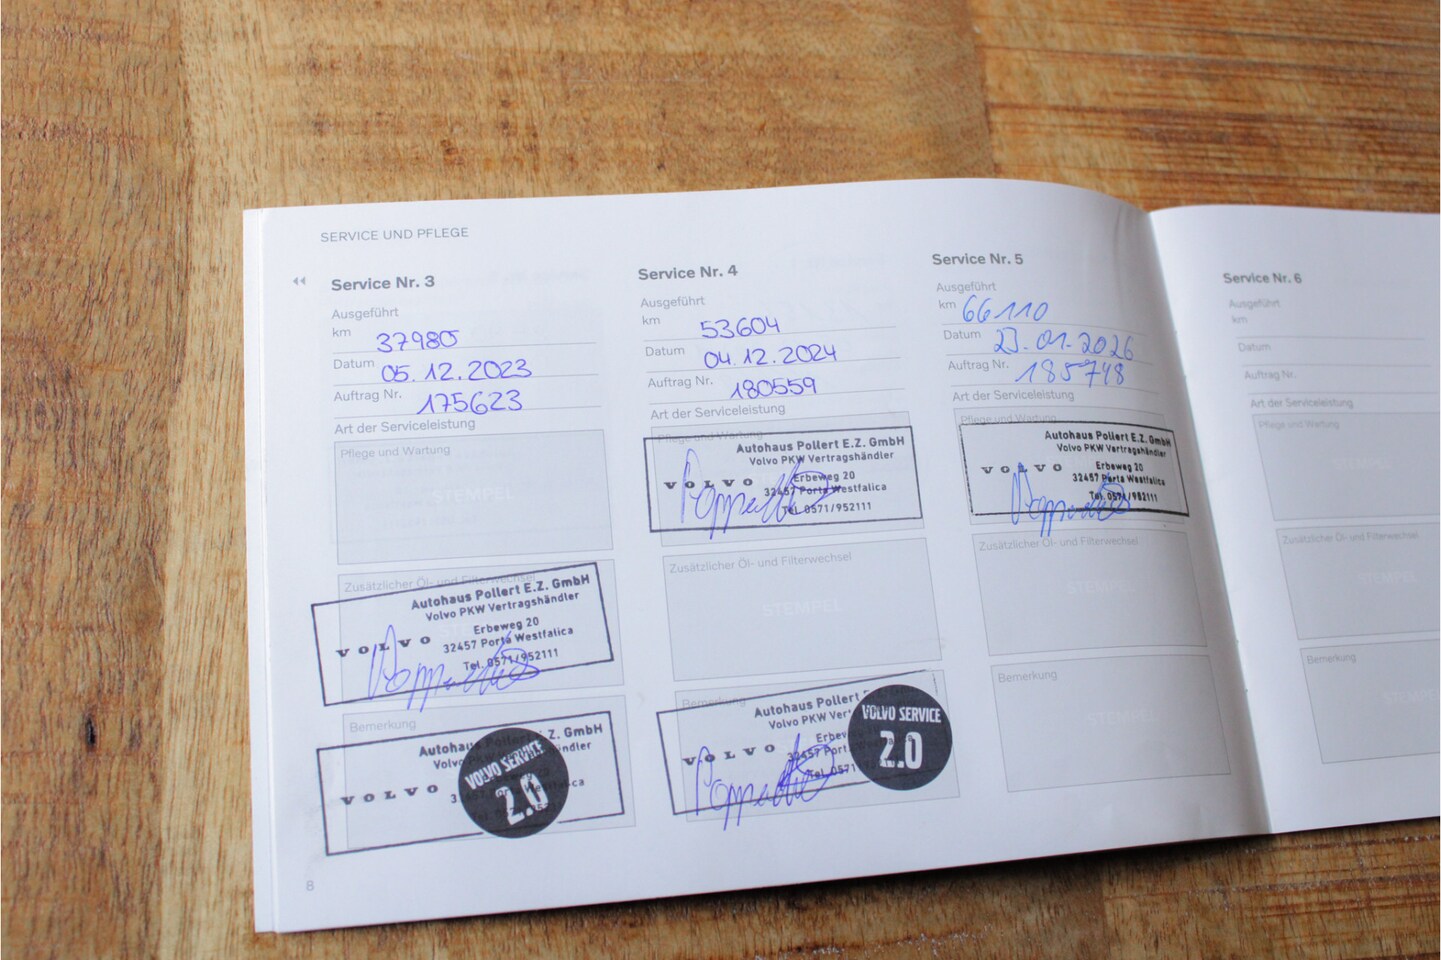 SERVICE UND PFLEGE
Service Nr. 3
Ausgeführt
km 37980
Datum 05.12.2023
Auftrag Nr. 175623
Art der Serviceleistung
Pflege und Wartung
STEMPEL
Zusätzlicher Öl- und Filterwechsel
Autohaus Pollert E.Z. GmbH
Volvo PKW Vertragshändler
VOLVO
Erbeweg 20
32457 Porta Westfalica
Tel. 0571/952111
Bemerkung
Autohaus Z. GmbH
Volvo ändler
VOLVO
VOLVO SERVICE
2.0
8
Service Nr. 4
Ausgeführt
km 53604
Datum 04.12.2024
Auftrag Nr. 180559
Art der Serviceleistung
Pflege und Wartung
Autohaus Pollert E.Z. GmbH
Volvo PKW Vertragshändler
VOLVO
Erbeweg 20
32457 Porta Westfalica
Tel. 0571/952111
Zusätzlicher Öl- und Filterwechsel
STEMPEL
Bemerkung
Autohaus Pollert
Volvo PKW Ver
VOLVO
32457 Port
Tel. 0571
VOLVO SERVICE
2.0
Service Nr. 5
Ausgeführt
km 66110
Datum 23.01.2026
Auftrag Nr. 185748
Art der Serviceleistung
Pflege und Wartung
Autohaus Pollert E.Z. GmbH
Volvo PKW Vertragshändler
VOLVO
Erbeweg 20
32457 Porta Westfalica
Tel. 0571/952111
Zusätzlicher Öl- und Filterwechsel
STEMPEL
Bemerkung
STEMPEL
Service Nr. 6
Ausgeführt
km
Datum
Auftrag Nr.
Art der Serviceleistung
Pflege und Wartung
STEMPEL
Zusätzlicher Öl- und Filterwechsel
STEMPEL
Bemerkung
STEMPEL